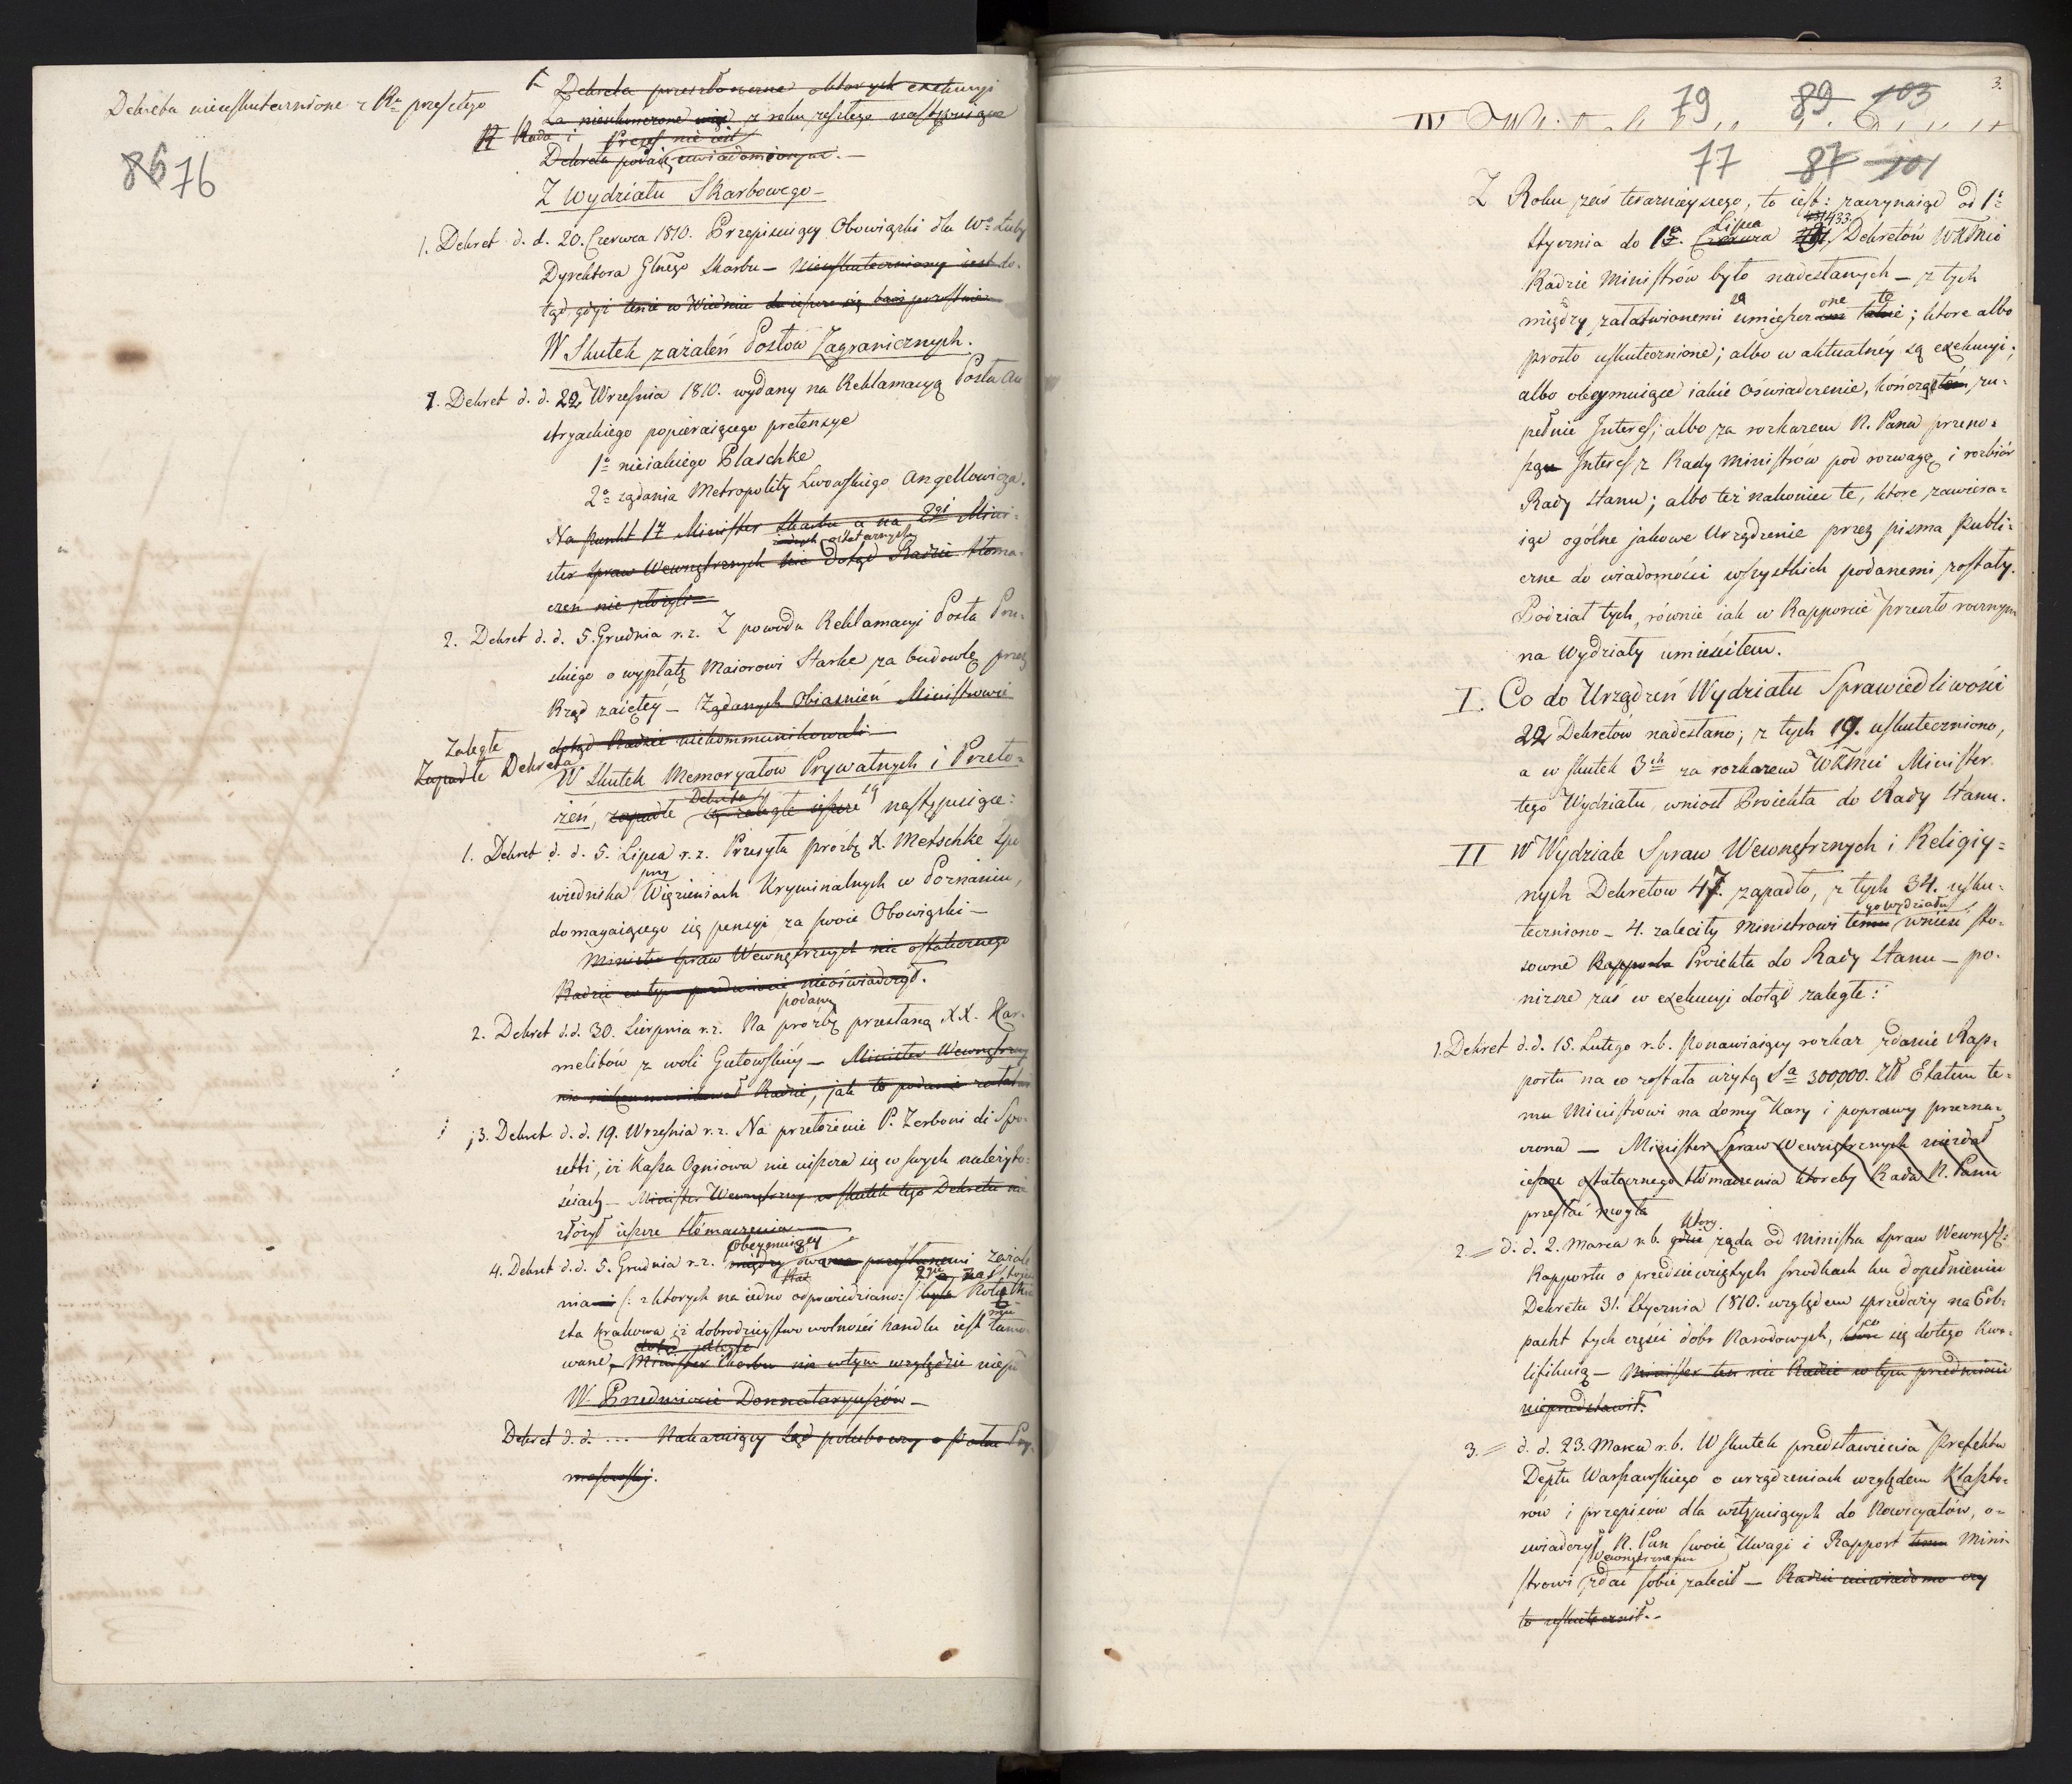 Dekreta nieuskutecznione z Ru przeszłego
86 76
Dekreta przeszłoroczne których exekucyi
za nieukończone z roku zeszłego następuiące
Rada i Prezes nie jest
Dekreta podaię uwiadomionym. —
Z Wydziału Skarbowego —
1. Dekret d. d. 20. Czerwca 1810. Przepisuiący Obowiązki dla Wo Łuby
Dyrektora Glnego Skarbu — Nieuskuteczniony iest do-
tąd, gdyż tenże w Wiedniu
W Skutek zażaleń Posłów Zagranicznych.
1. Dekret d. d. 22 Września 1810. wydany na Reklamacyą Posła Au
stryackiego popieraiącego pretensye
1o nieiakiego Plaschke
2o żądania Metropolity Lwowskiego Angellowicza.
Na punkt 1y Minister Skarbu a na 2gi Mini-
żadnych ostatecznych
ster Spraw Wewnętrznych nie dotąd Radzie tłoma-
czeń nie złożyli —
2. Dekret d. d. 5. Grudnia r. z. Z powodu Reklamacyi Posła Pru-
skiego o wypłatę Maiorowi Starke za budowlę przez
Rząd zaiętéy — Żądanych Obiaśnień Ministrowie
dotąd Radzie niekommunikowali —
Zaległe
Zapadłe Dekreta
W Skutek Memoryałów Prywatnych i Przeło-
Dekreta są
żeń, zapadłe są zaległe ieszcze następuiące:
1. Dekret d. d. 5. Lipca r. z. Przesyła prośbę X. Metschke Spo
przy
wiednika Więzieniach Kryminalnych w Poznaniu,
domagaiącego się pensyi za swoie Obowiązki —
Minister Spraw Wewnętrznych nic ostatecznego
Radzie w tym przedmiocie nieoświadczył.
podaną
2. Dekret d. d. 30. Sierpnia r. z. Na prośbę przesłaną XX. Kar-
melitów z woli Gułowskiéy — Minister Wewnętrzny
nie niekommunikował Radzie, jak to podanie
3. Dekret d. d. 19. Września r. z. Na przełożenie P. Zerboni di Spo-
setti, iż Kassa Ogniowa nie uiszcza się w swych należyto-
ściach — Minister Wewnętrzny w skutek tego Dekretu nie
złożył ieszcze tłómaczenia —
Obeymuiący
4. Dekret d. d. 5. Grudnia r. z. między przesłanemi zażale
niami /: z których na iedno odpowiedziano :/
sta Krakowa iż dobrodzieystwo wolności handlu iest tamo-
dotąd zaległe
wane, — Minister Skarbu nic w tym względzie
W. Przedmiocie Donnataryuszów —
Dekret d. d. .... Nakazuiący Sąd polubowny
3.
79 89 103
IV
77 87 101
Z Roku zaś teraźnieyszego, to iest: zaczynaiąc od 1o
Lipca 433
Stycznia do 1o. Czerwca Dekretów WKMci
Radzie Ministrów było nadesłanych — z tych
są one te
między załatwionemi umieszczone takie; które albo
prosto uskutecznione; albo w aktualnéy są exekucyi;
albo obeymuiące iakie Oświadczenie, kończą tem, zu-
pełnie Interes; albo za rozkazem N. Pana przeno-
szą Interes z Rady Ministrów pod rozwagę i rozbiór
Rady Stanu; albo też nakoniec te, które zawiera-
iąc ogólne jakowe Urządzenie przez pisma publi-
czne do wiadomości wszystkich podanemi zostały.
Podział tych, równie iak w Rapporcie przeszłorocznym
na Wydziały umieściłem.
I. Co do Urządzeń Wydziału Sprawiedliwości
22 Dekretów nadesłano; z tych 19. uskuteczniono,
a w skutek 3ch za rozkazem WKMci Minister
tego Wydziału, wniosł Proiekta do Rady Stanu.
II W Wydziale Spraw Wewnętrznych i Religiy-
nych Dekretow 47. zapadło, z tych 34. usku-
go wydziału
teczniono — 4. zaleciły Ministrowi temu wnieść sto-
sowne Rapporta Proiekta do Rady Stanu — po-
niższe zaś w exekucyi dotąd zaległe:
1. Dekret d. d. 15. Lutego r. b. Ponawiaiący rozkaz zdania Rap-
portu na co została użytą Sa 300,000. Złł Etatem te-
mu Ministrowi na domy Kary i poprawy przezna-
czona — Minister Spraw Wewnętrznych niezdał
ieszcze ostatecznego tłómaczenia któreby Rada N. Panu
przesłać mogła
który
2. = d. d. 2. Marca r. b. gdzie żąda od Ministra Spraw Wewnętz:
Rapportu o przedsięwziętych środkach ku dopełnieniu
Dekretu 31. Stycznia 1810. względem sprzedaży na Erb-
co
pacht tych części dóbr Narodowych, które się dotego Kwa-
lifikuią — Minister ten nic Radzie w tym przedmiocie
nieprzedstawił.
3. = d. d. 23. Marca r. b. W skutek przedstawienia Prefekta
Deptu Warszawskiego o urządzeniach względem Klaszto-
rów i przepisów dla wstępuiących do Nowicyatów, o-
świadczył N. Pan swoie Uwagi i Rapport temu Mini-
Wewnętrznemu
strowi zdać sobie zalecił — Radzie niewiadomo czy
to uskutecznił. —